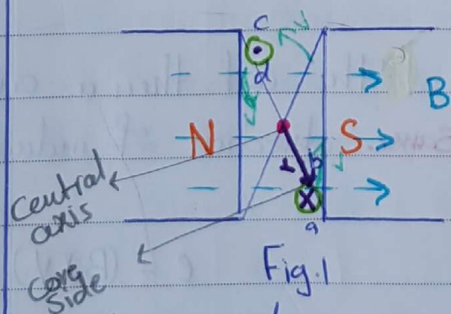 c
d
B
N
S
r
b
a
Central
axis
Core
Side
Fig.1